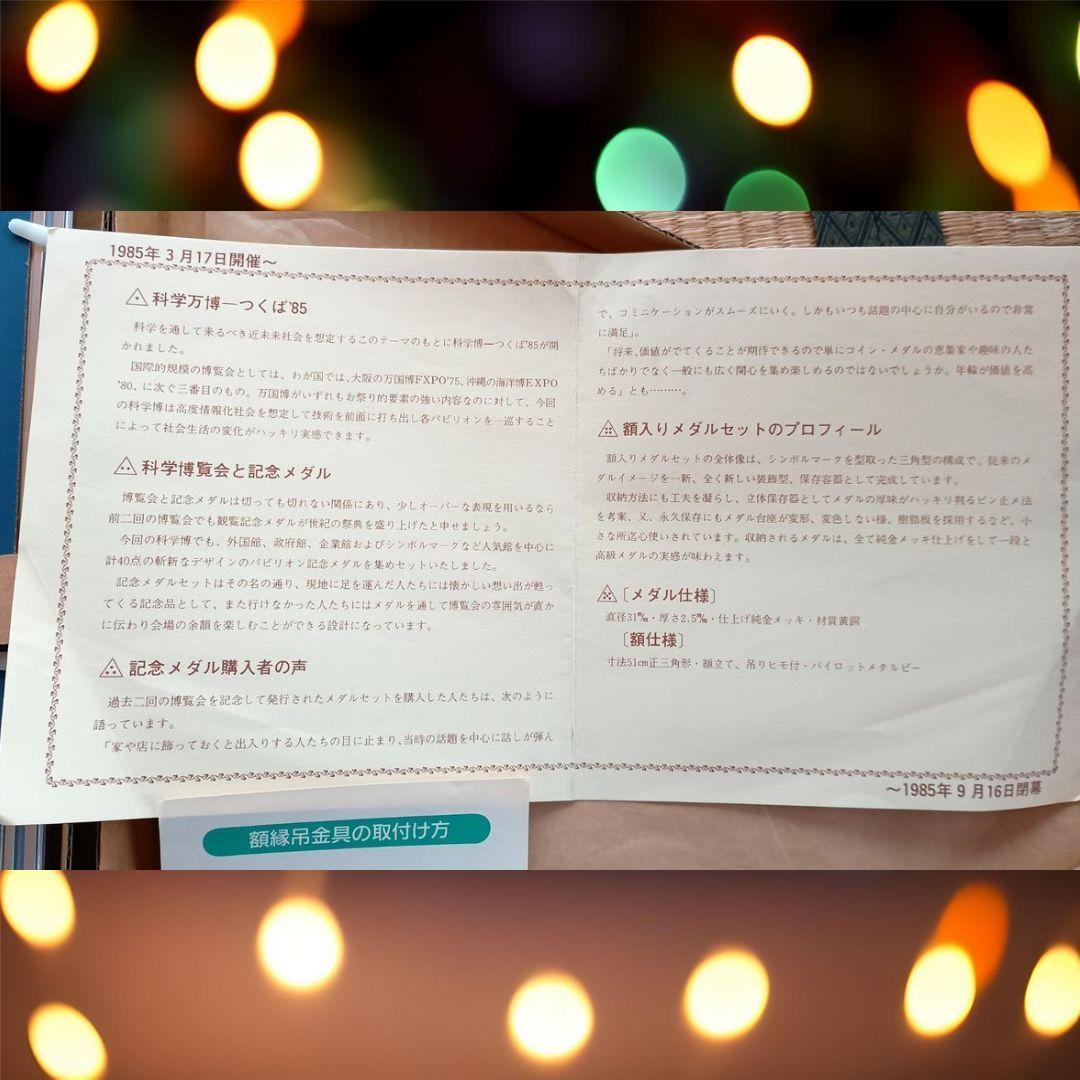 1985年3月17日開催～
科学万博―つくば'85
科学を通して来るべき近未来社会を想定するこのテーマのもとに科学博―つくば'85が開
かれました。
国際的規模の博覧会としては、わが国では、大阪の万国博FXPO'75、沖縄の海洋博EXPO
'80、に次ぐ三番目のもの。万国博がいずれもお祭り的要素の強い内容なのに対して、今回
の科学博は高度情報化社会を想定して技術を前面に打ち出し各パビリオンを一巡すること
によって社会生活の変化がハッキリ実感できます。
科学博覧会と記念メダル
博覧会と記念メダルは切っても切れない関係にあり、少しオーバーな表現を用いるなら
前二回の博覧会でも観覧記念メダルが世紀の祭典を盛り上げたと申せましょう。
今回の科学博でも、外国館、政府館、企業館およびシンボルマークなど人気館を中心に
計40点の斬新なデザインのパビリオン記念メダルを集めセットいたしました。
記念メダルセットはその名の通り、現地に足を運んだ人たちには懐かしい想い出が甦っ
てくる記念品として、また行けなかった人たちにはメダルを通して博覧会の雰囲気が直か
に伝わり会場の余韻を楽しむことができる設計になっています。
記念メダル購入者の声
過去二回の博覧会を記念して発行されたメダルセットを購入した人たちは、次のように
語っています。
「家や店に飾っておくと出入りする人たちの目に止まり、当時の話題を中心に話しが弾ん
で、コミニケーションがスムーズにいく。しかもいつも話題の中心に自分がいるので非常
に満足」。
「将来、価値がでてくることが期待できるので単にコイン・メダルの蒐集家や趣味の人た
ちばかりでなく一般にも広く関心を集め楽しめるのではないでしょうか。年輪が価値を高
める」とも………。
額入りメダルセットのプロフィール
額入りメダルセットの全体像は、シンボルマークを型取った三角型の構成で、従来のメ
ダルイメージを一新、全く新しい装飾型、保存容器として完成しています。
収納方法にも工夫を凝らし、立体保存器としてメダルの厚味がハッキリ判るピン止メ法
を考案、又、永久保存にもメダル台座が変形、変色しない様、樹脂板を採用するなど、小
さな所迄心使いされています。収納されるメダルは、全て純金メッキ仕上げをして一段と
高級メダルの実感が味わえます。
〔メダル仕様〕
直径31㎜・厚さ2.5㎜・仕上げ純金メッキ・材質黄銅
〔額仕様〕
寸法51cm正三角形・額立て、吊りヒモ付・パイロットメタルビー
～1985年9月16日閉幕
額縁吊金具の取付け方